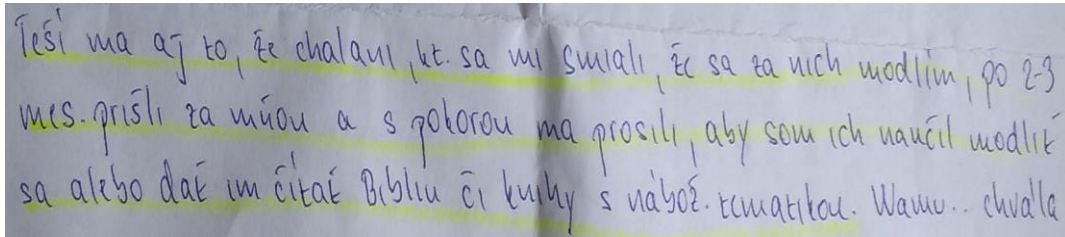 Teší ma aj to, že chalani, kt. sa mi smiali, že sa za nich modlím, po 2-3
mes. prišli za mňou a s pokorou ma prosili, aby som ich naučil modliť
sa alebo dať im čítať Bibliu či knihy s nábož. tematikou. Wawu.. chvála